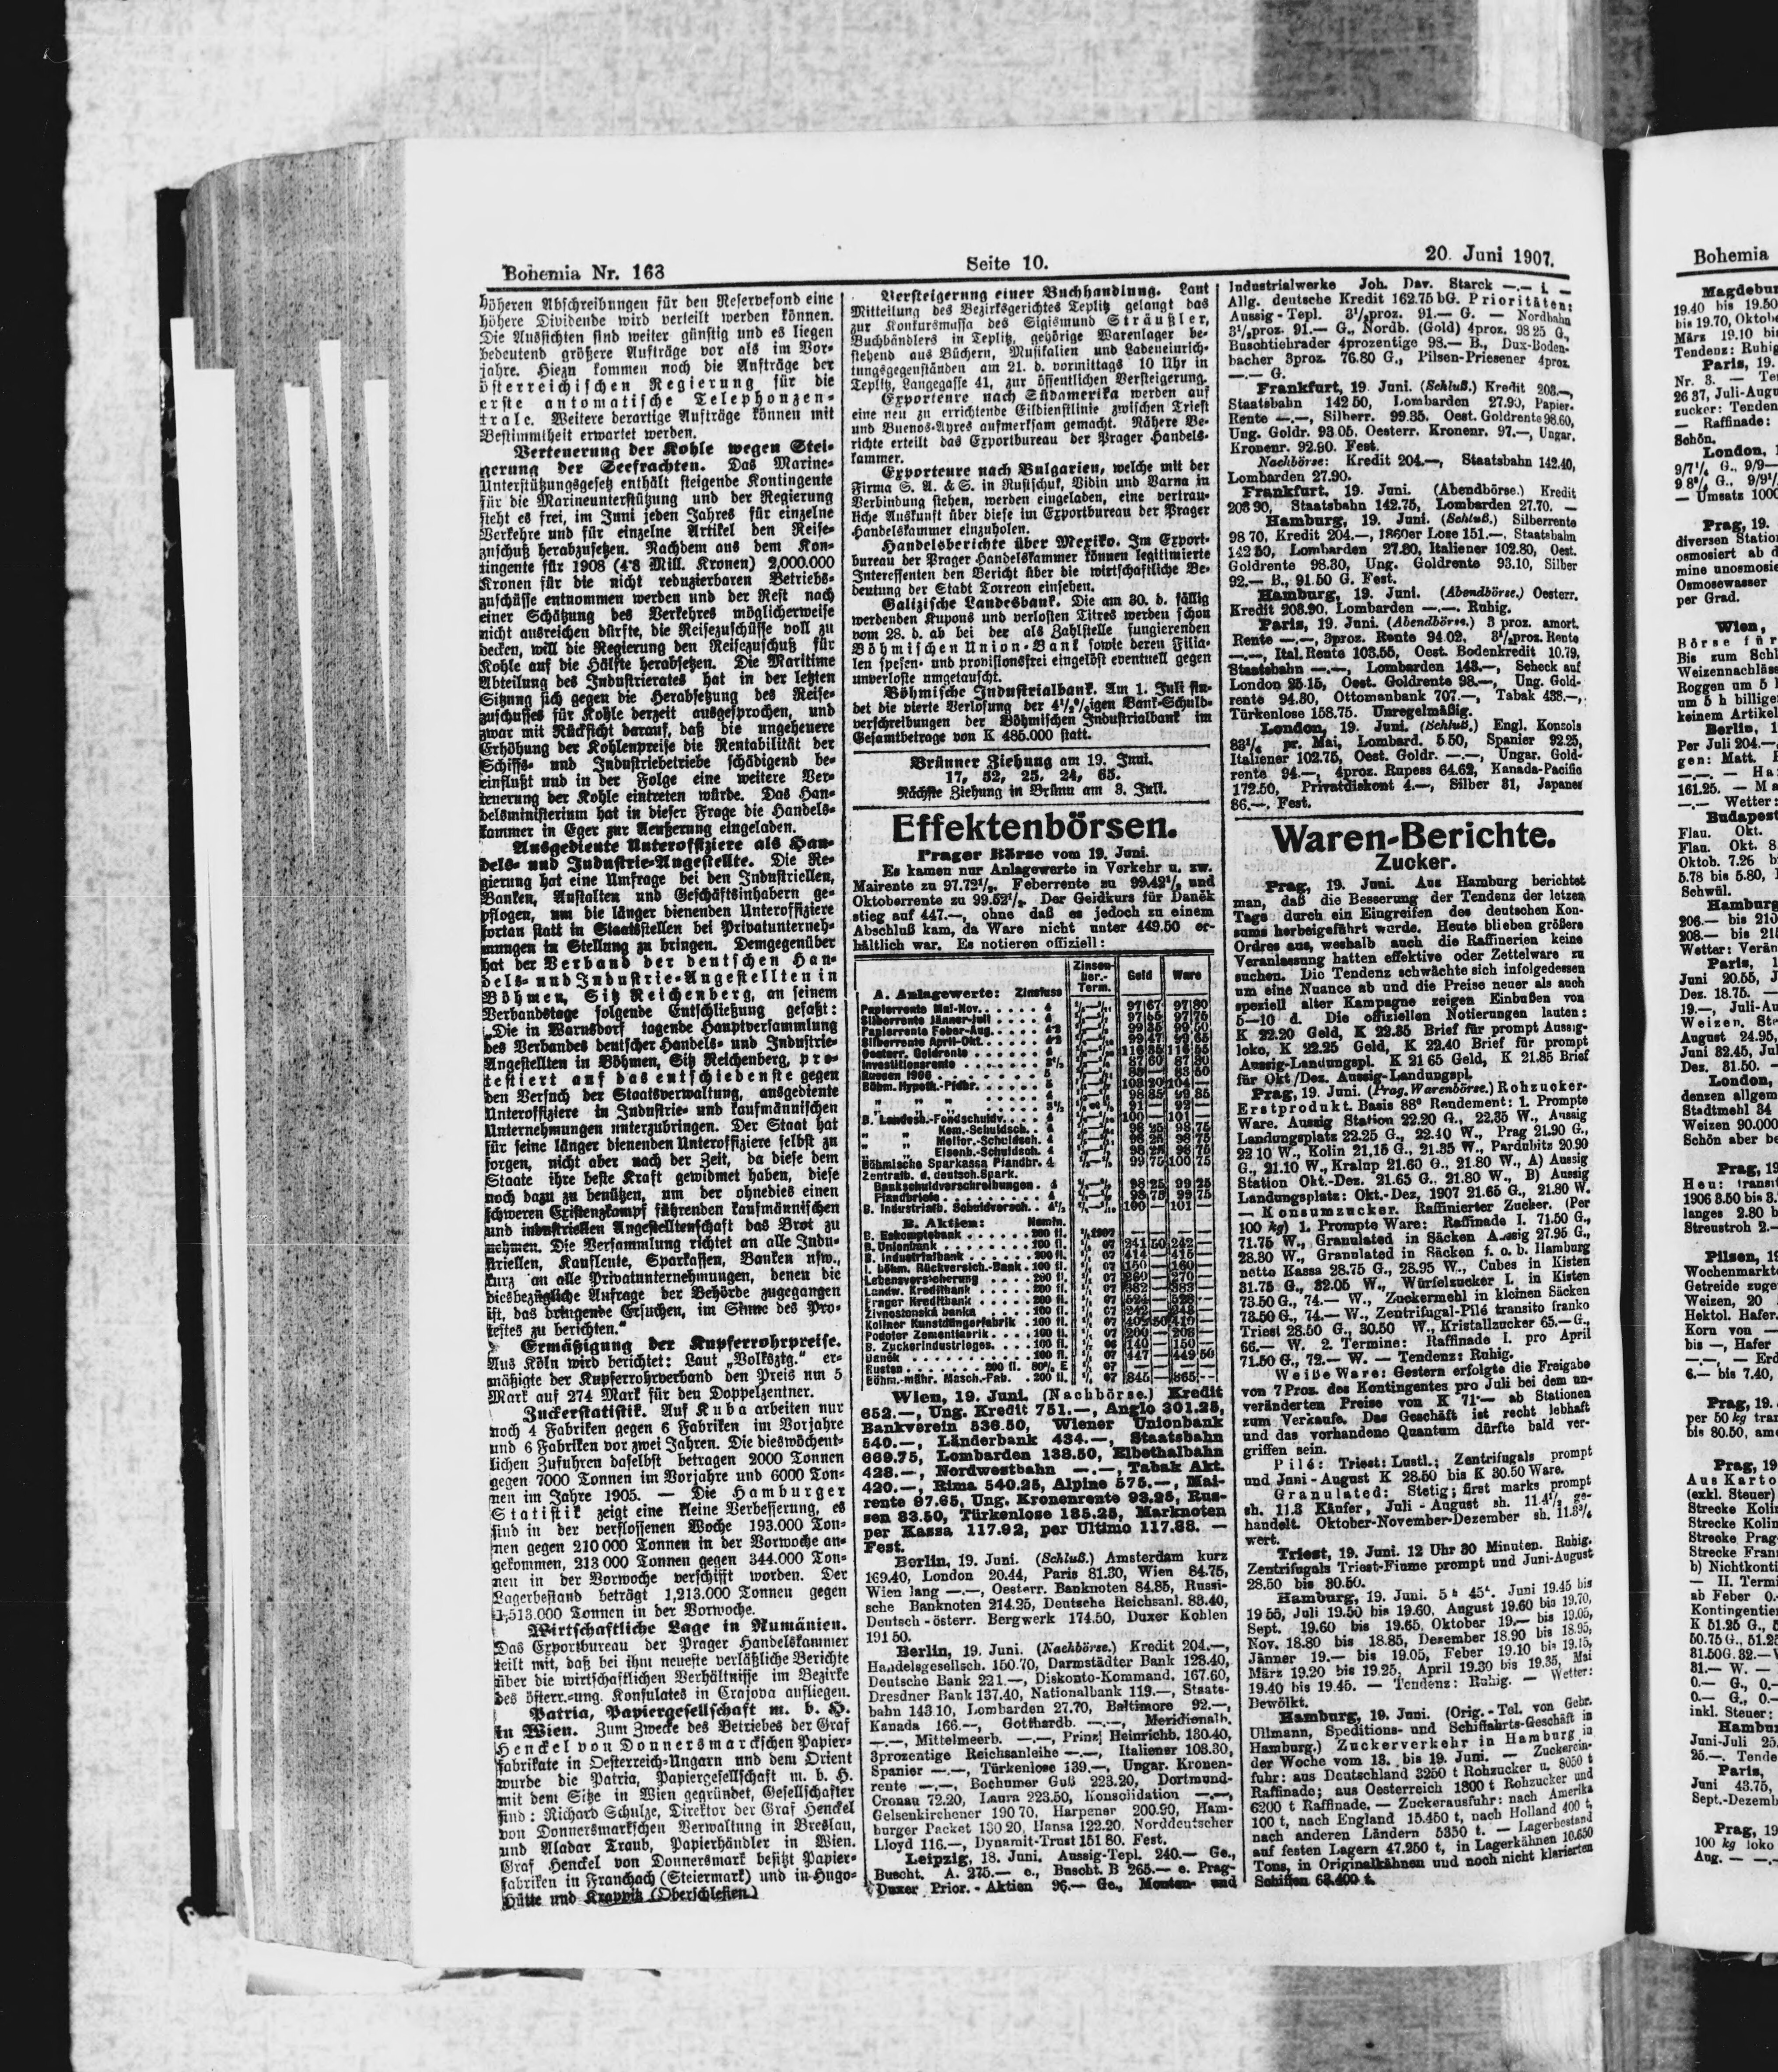 Bohemia Nr. 163
Seite 10.
20. Juni 1907.
höheren Abschreibungen für den Reservefond eine
höhere Dividende wird verteilt werden können.
Die Aussichten sind weiter günstig und es liegen
bedeutend größere Aufträge vor als im Vor-
jahre. Hiezu kommen noch die Aufträge der
österreichischen Regierung für die
erste automatische Telephonzen-
trale. Weitere derartige Aufträge können mit
Bestimmtheit erwartet werden.
Verteuerung der Kohle wegen Stei-
gerung der Seefrachten. Das Marine-
Unterstützungsgesetz enthält steigende Kontingente
für die Marineunterstützung und der Regierung
steht es frei, im Juni jeden Jahres für einzelne
Verkehre und für einzelne Artikel den Reise-
zuschuß herabzusetzen. Nachdem aus dem Kon-
tingente für 1908 (4·8 Mill. Kronen) 2,000.000
Kronen für die nicht reduzierbaren Betriebs-
zuschüsse entnommen werden und der Rest nach
einer Schätzung des Verkehres möglicherweise
nicht ausreichen dürfte, die Reisezuschüsse voll zu
decken, will die Regierung den Reisezuschuß für
Kohle auf die Hälfte herabsetzen. Die Maritime
Abteilung des Industrierates hat in der letzten
Sitzung sich gegen die Herabsetzung des Reise-
zuschusses für Kohle derzeit ausgesprochen, und
zwar mit Rücksicht darauf, daß die ungeheuere
Erhöhung der Kohlenpreise die Rentabilität der
Schiffs- und Industriebetriebe schädigend be-
einflußt und in der Folge eine weitere Ver-
teuerung der Kohle eintreten würde. Das Han-
delsministerium hat in dieser Frage die Handels-
kammer in Eger zur Aeußerung eingeladen.
Ausgediente Unteroffiziere als Han-
dels- und Industrie-Angestellte. Die Re-
gierung hat eine Umfrage bei den Industriellen,
Banken, Anstalten und Geschäftsinhabern ge-
pflogen, um die länger dienenden Unteroffiziere
fortan statt in Staatsstellen bei Privatunterneh-
mungen in Stellung zu bringen. Demgegenüber
hat der Verband der deutschen Han-
dels- und Industrie-Angestellten in
Böhmen, Sitz Reichenberg, an seinem
Verbandstage folgende Entschließung gefaßt:
„Die in Warnsdorf tagende Hauptversammlung
des Verbandes deutscher Handels- und Industrie-
Angestellten in Böhmen, Sitz Reichenberg, pro-
testiert auf das entschiedenste gegen
den Versuch der Staatsverwaltung, ausgediente
Unteroffiziere in Industrie- und kaufmännischen
Unternehmungen unterzubringen. Der Staat hat
für seine länger dienenden Unteroffiziere selbst zu
sorgen, nicht aber nach der Zeit, da diese dem
Staate ihre beste Kraft gewidmet haben, diese
noch dazu zu benützen, um der ohnedies einen
schweren Existenzkampf führenden kaufmännischen
und industriellen Angestelltenschaft das Brot zu
nehmen. Die Versammlung richtet an alle Indu-
striellen, Kaufleute, Sparkassen, Banken usw.,
kurz an alle Privatunternehmungen, denen die
diesbezügliche Anfrage der Behörde zugegangen
ist, das dringende Ersuchen, im Sinne des Pro-
testes zu berichten."
Ermäßigung der Kupferrohrpreise.
Aus Köln wird berichtet: Laut „Volksztg." er-
mäßigte der Kupferrohrverband den Preis um 5
Mark auf 274 Mark für den Doppelzentner.
Zuckerstatistik. Auf Kuba arbeiten nur
noch 4 Fabriken gegen 6 Fabriken im Vorjahre
und 6 Fabriken vor zwei Jahren. Die dieswöchent-
lichen Zufuhren daselbst betragen 2000 Tonnen
gegen 7000 Tonnen im Vorjahre und 6000 Ton-
nen im Jahre 1905. — Die Hamburger
Statistik zeigt eine kleine Verbesserung, es
sind in der verflossenen Woche 193.000 Ton-
nen gegen 210 000 Tonnen in der Vorwoche an-
gekommen, 213 000 Tonnen gegen 344.000 Ton-
nen in der Vorwoche verschifft worden. Der
Lagerbestand beträgt 1,213.000 Tonnen gegen
1,513.000 Tonnen in der Vorwoche.
Wirtschaftliche Lage in Rumänien.
Das Exportbureau der Prager Handelskammer
teilt mit, daß bei ihm neueste verläßliche Berichte
über die wirtschaftlichen Verhältnisse im Bezirke
des österr.-ung. Konsulates in Crajova aufliegen.
Patria, Papiergesellschaft m. b. H.
in Wien. Zum Zwecke des Betriebes der Graf
Henckel von Donnersmarckschen Papier-
fabrikate in Oesterreich-Ungarn und dem Orient
wurde die Patria, Papiergesellschaft m. b. H.
mit dem Sitze in Wien gegründet, Gesellschafter
sind: Richard Schulze, Direktor der Graf Henckel
von Donnersmarkschen Verwaltung in Breslau,
und Aladar Traub, Papierhändler in Wien.
Graf Henckel von Donnersmark besitzt Papier-
fabriken in Franchach (Steiermark) und in Hugo-
Hütte und Krappitz (Oberschlesien)
Versteigerung einer Buchhandlung. Laut
Mitteilung des Bezirksgerichtes Teplitz gelangt das
zur Konkursmassa des Sigismund Sträußler,
Buchhändlers in Teplitz, gehörige Warenlager be-
stehend aus Büchern, Musikalien und Ladeneinrich-
tungsgegenständen am 21. d. vormittags 10 Uhr in
Teplitz, Langegasse 41, zur öffentlichen Versteigerung.
Exporteure nach Südamerika werden auf
eine neu zu errichtende Eildienstlinie zwischen Triest
und Buenos-Ayres aufmerksam gemacht. Nähere Be-
richte erteilt das Exportbureau der Prager Handels-
kammer.
Exporteure nach Bulgarien, welche mit der
Firma S. A. & S. in Rustschuk, Vidin und Varna in
Verbindung stehen, werden eingeladen, eine vertrau-
liche Auskunft über diese im Exportbureau der Prager
Handelskammer einzuholen.
Handelsberichte über Mexiko. Im Export-
bureau der Prager Handelskammer können legitimierte
Interessenten den Bericht über die wirtschaftliche Be-
deutung der Stadt Torreon einsehen.
Galizische Landesbank. Die am 30. d. fällig
werdenden Kupons und verlosten Titres werden schon
vom 28. d. ab bei der als Zahlstelle fungierenden
Böhmischen Union-Bank sowie deren Filia-
len spesen- und provisionsfrei eingelöst eventuell gegen
unverloste umgetauscht.
Böhmische Industrialbank. Am 1. Juli fin-
det die vierte Verlosung der 4½%igen Bank-Schuld-
verschreibungen der Böhmischen Industrialbank im
Gesamtbetrage von K 485.000 statt.
Brünner Ziehung am 19. Juni.
17, 52, 25, 24, 65.
Nächste Ziehung in Brünn am 3. Juli.
Effektenbörsen.
Prager Börse vom 19. Juni.
Es kamen nur Anlagewerte in Verkehr u. zw.
Mairente zu 97.72½, Feberrente zu 99.42½ und
Oktoberrente zu 99.52½. Der Geldkurs für Daněk
stieg auf 447.—, ohne daß es jedoch zu einem
Abschluß kam, da Ware nicht unter 449.50 er-
hältlich war. Es notieren offiziell:
A. Anlagewerte: Zinsfuss Zinsen-ber.-Term. Geld Ware
Papierrente Mai-Nov. 4 97 67 97 80
Silberrente Jänner-Juli 4 97 65 97 75
Papierrente Feber-Aug. 4·2 99 35 99 50
Silberrente April-Okt. 4·2 99 47 99 65
Oesterr. Goldrente 4 116 35 116 55
Investitionsrente 3½ 87 60 87 80
Russen 1906 5 83 — 83 50
Böhm. Hypoth.-Pfdbr. 5 103 20 104 —
„ „ „ 4 98 85 99 85
„ „ „ 3½ 91 — 92 —
B. Landesb.-Fondschuldv. 4 100 — 101 —
„ „ Kom.-Schuldsch. 4 98 25 98 75
„ „ Melior.-Schuldsch. 4 98 25 98 75
„ „ Eisenb.-Schuldsch. 4 98 25 98 75
Böhmische Sparkassa Pfandbr. 4 99 75 100 75
Zentralb. d. deutsch. Spark.
Bankschuldverschreibungen 4 98 25 99 25
Pfandbriefe 4 98 75 99 75
B. Industrialb. Schuldversch. 4½ 100 — 101 —
B. Aktien: Nomin.
B. Eskomptebank 200 fl. 1/1 1907
B. Unionbank 100 fl. 07 241 50 242 —
B. Industrialbank 200 fl. 07 414 — 415 —
I. böhm. Rückversich.-Bank 100 fl. 07 150 — 160 —
Lebensversicherung 200 fl. 07 260 — 270 —
Landw. Kreditbank 200 fl. 07 382 — 383 —
Prager Kreditbank 200 fl. 07 524 — 528 —
Živnostenská banka 100 fl. 07 242 — 243 —
Koliner Kunstdüngerfabrik 100 fl. 07 409 50 410 —
Podoler Zementfabrik 100 fl. 07 200 — 208 —
B. Zuckerindustrieges. 100 fl. 06 140 — 150 —
Daněk 100 fl. 07 447 — 449 50
Ruston 200 fl. 80% E 07 — —
Böhm.-mähr. Masch.-Fab. 200 fl. 07 845 — 865 —
Wien, 19. Juni. (Nachbörse.) Kredit
652.—, Ung. Kredit 751.—, Anglo 301.25,
Bankverein 536.50, Wiener Unionbank
540.—, Länderbank 434.—, Staatsbahn
669.75, Lombarden 138.50, Elbethalbahn
428.—, Nordwestbahn —.—, Tabak Akt.
420.—, Rima 540.25, Alpine 575.—, Mai-
rente 97.65, Ung. Kronenrente 93.25, Rus-
sen 83.50, Türkenlose 185.25, Marknoten
per Kassa 117.92, per Ultimo 117.88. —
Fest.
Berlin, 19. Juni. (Schluß.) Amsterdam kurz
169.40, London 20.44, Paris 81.30, Wien 84.75,
Wien lang —.—, Oesterr. Banknoten 84.85, Russi-
sche Banknoten 214.25, Deutsche Reichsanl. 83.40,
Deutsch-österr. Bergwerk 174.50, Duxer Kohlen
191 50.
Berlin, 19. Juni. (Nachbörse.) Kredit 204.—,
Handelsgesellsch. 150.70, Darmstädter Bank 128.40,
Deutsche Bank 221.—, Diskonto-Kommand. 167.60,
Dresdner Bank 137.40, Nationalbank 119.—, Staats-
bahn 143.10, Lombarden 27.70, Baltimore 92.—,
Kanada 166.—, Gotthardb. —.—, Meridionalb.
—.—, Mittelmeerb. —.—, Prinz Heinrichb. 130.40,
3prozentige Reichsanleihe —.—, Italiener 103.30,
Spanier —.—, Türkenlose 139.—, Ungar. Kronen-
rente —.—, Bochumer Guß 223.20, Dortmund-
Cronau 72.20, Laura 223.50, Konsolidation —.—,
Gelsenkirchener 190 70, Harpener 200.90, Ham-
burger Packet 130 20, Hansa 122.20, Norddeutscher
Lloyd 116.—, Dynamit-Trust 151 80. Fest.
Leipzig, 18. Juni. Aussig-Tepl. 240.— Ge.,
Buscht. A. 275.— e., Buscht. B 265.— e. Prag-
Duxer Prior.-Aktien 96.— Ge., Montan- und
Industrialwerke Joh. Dav. Starck —.—
Allg. deutsche Kredit 162.75 bG. Prioritäten:
Aussig-Tepl. 3½proz. 91.— G. — Nordbahn
3½proz. 91.— G., Nordb. (Gold) 4proz. 98 25 G.,
Buschtiehrader 4prozentige 98.— B., Dux-Boden-
bacher 3proz. 76.80 G., Pilsen-Priesener 4proz.
—.— G.
Frankfurt, 19. Juni. (Schluß.) Kredit 203.—,
Staatsbahn 142 50, Lombarden 27.90, Papier-
Rente —.—, Silberr. 99.35. Oest. Goldrente 98.60,
Ung. Goldr. 93 05, Oesterr. Kronenr. 97.—, Ungar.
Kronenr. 92.80. Fest.
Nachbörse: Kredit 204.—, Staatsbahn 142.40,
Lombarden 27.90.
Frankfurt, 19. Juni. (Abendbörse.) Kredit
203 90, Staatsbahn 142.75, Lombarden 27.70. —
Hamburg, 19. Juni. (Schluß.) Silberrente
98 70, Kredit 204.—, 1860er Lose 151.—, Staatsbahn
142 50, Lombarden 27.80, Italiener 102.80, Oest.
Goldrente 98.30, Ung. Goldrente 93.10, Silber
92.— B., 91.50 G. Fest.
Hamburg, 19. Juni. (Abendbörse.) Oesterr.
Kredit 203.90, Lombarden —.—. Ruhig.
Paris, 19. Juni. (Abendbörse.) 3 proz. amort.
Rente —.—, 3proz. Rente 94 02, 3½proz. Rente
—.—, Ital. Rente 103.55, Oest. Bodenkredit 10.79,
Staatsbahn —.—, Lombarden 143.—, Scheck auf
London 25.15, Oest. Goldrente 98.—, Ung. Gold-
rente 94.80, Ottomanbank 707.—, Tabak 438.—,
Türkenlose 158.75. Unregelmäßig.
London, 19. Juni. (Schluß.) Engl. Konsols
83¼ pr. Mai, Lombard. 5 50, Spanier 92.25,
Italiener 102.75, Oest. Goldr. —.—, Ungar. Gold-
rente 94.—, 4proz. Rupees 64.62, Kanada-Pacific
172.50, Privatdiskont 4.—, Silber 31, Japaner
86.—. Fest.
Waren-Berichte.
Zucker.
Prag, 19. Juni. Aus Hamburg berichtet
man, daß die Besserung der Tendenz der letzen
Tage durch ein Eingreifen des deutschen Kon-
sums herbeigeführt wurde. Heute blieben größere
Ordres aus, weshalb auch die Raffinerien keine
Veranlassung hatten effektive oder Zettelware zu
suchen. Die Tendenz schwächte sich infolgedessen
um eine Nuance ab und die Preise neuer als auch
speziell alter Kampagne zeigen Einbußen von
5—10 d. Die offiziellen Notierungen lauten:
K 22.20 Geld, K 22.35 Brief für prompt Aussig-
loko, K 22.25 Geld, K 22.40 Brief für prompt
Aussig-Landungspl. K 21 65 Geld, K 21.85 Brief
für Okt./Dez. Aussig-Landungspl.
Prag, 19. Juni. (Prag. Warenbörse.) Rohzucker-
Erstprodukt. Basis 88° Rendement: 1. Prompte
Ware. Aussig Station 22.20 G., 22.35 W., Aussig
Landungsplatz 22.25 G., 22.40 W., Prag 21.90 G.,
22 10 W., Kolin 21.15 G., 21.35 W., Pardubitz 20.90
G., 21.10 W., Kralup 21.60 G., 21.80 W., A) Aussig
Station Okt.-Dez. 21.65 G., 21.80 W., B) Aussig
Landungsplatz: Okt.-Dez. 1907 21.65 G., 21.80 W.
— Konsumzucker. Raffinierter Zucker. (Per
100 kg) 1. Prompte Ware: Raffinade I. 71.50 G.,
71.75 W., Granulated in Säcken Aussig 27.95 G.,
28.80 W., Granulated in Säcken f. o. b. Hamburg
netto Kassa 28.75 G., 28.95 W., Cubes in Kisten
31.75 G., 32.05 W., Würfelzucker I. in Kisten
73.50 G., 74.— W., Zuckermehl in kleinen Säcken
73.50 G., 74.— W., Zentrifugal-Pilé transito franko
Triest 28.50 G., 30.50 W., Kristallzucker 65.— G.,
66.— W. 2. Termine: Raffinade I. pro April
71.50 G., 72.— W. — Tendenz: Ruhig.
Weiße Ware: Gestern erfolgte die Freigabe
von 7 Proz. des Kontingentes pro Juli bei dem un-
veränderten Preise von K 71·— ab Stationen
zum Verkaufe. Das Geschäft ist recht lebhaft
und das vorhandene Quantum dürfte bald ver-
griffen sein.
Pilé: Triest: Lustl.; Zentrifugals prompt
und Juni-August K 28.50 bis K 30.50 Ware.
Granulated: Stetig; first marks prompt
sh. 11.3 Käufer, Juli-August sh. 11.4½ ge-
handelt. Oktober-November-Dezember sh. 11.3¾
wert.
Triest, 19. Juni. 12 Uhr 30 Minuten. Ruhig.
Zentrifugals Triest-Fiume prompt und Juni-August
28.50 bis 30.50.
Hamburg, 19. Juni. 5 h 45'. Juni 19.45 bis
19 55, Juli 19.50 bis 19.60, August 19.60 bis 19.70,
Sept. 19.60 bis 19.65, Oktober 19.— bis 19.05,
Nov. 18.80 bis 18.85, Dezember 18.90 bis 18.95,
Jänner 19.— bis 19.05, Feber 19.10 bis 19.15,
März 19.20 bis 19.25, April 19.30 bis 19.35, Mai
19.40 bis 19.45. — Tendenz: Ruhig. — Wetter:
Bewölkt.
Hamburg, 19. Juni. (Orig.-Tel. von Gebr.
Ullmann, Speditions- und Schiffahrts-Geschäft in
Hamburg.) Zuckerverkehr in Hamburg in
der Woche vom 13. bis 19. Juni. — Zuckerein-
fuhr: aus Deutschland 3250 t Rohzucker u. 8050 t
Raffinade; aus Oesterreich 1800 t Rohzucker und
6200 t Raffinade. — Zuckerausfuhr: nach Amerika
100 t, nach England 15.450 t, nach Holland 400 t,
nach anderen Ländern 5350 t. — Lagerbestand
auf festen Lagern 47.250 t, in Lagerkähnen 10.650
Tons, in Originalkähnen und noch nicht klarierten
Schiffen 63.400 t.
Bohemia
Magdebur
19.40 bis 19.50
bis 19.70, Oktobe
März 19.10 bis
Tendenz: Ruhig
Paris, 19.
Nr. 3. — Te
26 37, Juli-Augu
zucker: Tenden
— Raffinade:
Schön.
London, 1
9/7¼ G., 9/9—
— Umsatz 1000
Prag, 19.
diversen Station
osmosiert ab d
mine unosmosie
Osmosewasser
per Grad.
Wien,
Börse für
Bis zum Schl
Weizennachläss
Roggen um 5 h
um 5 h billige
keinem Artikel
Berlin, 1
Per Juli 204.—,
gen: Matt. H
—.—. — Ha
161.25. — Ma
—.— Wetter:
Budapest
Flau. Okt.
Flau. Okt. 8
Oktob. 7.26 b
5.78 bis 5.80,
Schwül.
Hamburg
206.— bis 210
208.— bis 215
Wetter: Verän
Paris, 1
Juni 20.55, J
Dez. 18.75. —
19.—, Juli-Au
Weizen. Ste
August 24.95,
Juni 32.45, Jul
Dez. 31.50. —
London,
denzen allgem
Stadtmehl 34
Weizen 90.000
Schön aber be
Prag, 19
Heu: transit
1906 3.50 bis 3.
langes 2.80 b
Streustroh 2.—
Pilsen, 19
Wochenmarkt
Getreide zuge
Weizen, 20
Hektol. Hafer.
Korn von —
bis —, Hafer
—.—, — Erd
6.— bis 7.40,
Prag, 19.
per 50 kg tran
bis 80.50, ame
Prag, 19
Aus Karto
(exkl. Steuer)
Strecke Kolin
Strecke Kolin
Strecke Prag
Strecke Fran
b) Nichtkonti
— II. Termi
ab Feber 0.
Kontingentier
K 51.25 G., 5
50.75 G., 51.25
31.50G. 32.—
31.— W. —
0.— G., 0.—
0.— G., 0.—
inkl. Steuer:
Hambur
Juni-Juli 25.
25.—. Tende
Paris,
Juni 43.75,
Sept.-Dezemb
Prag, 19
100 kg loko
Aug. — —.—